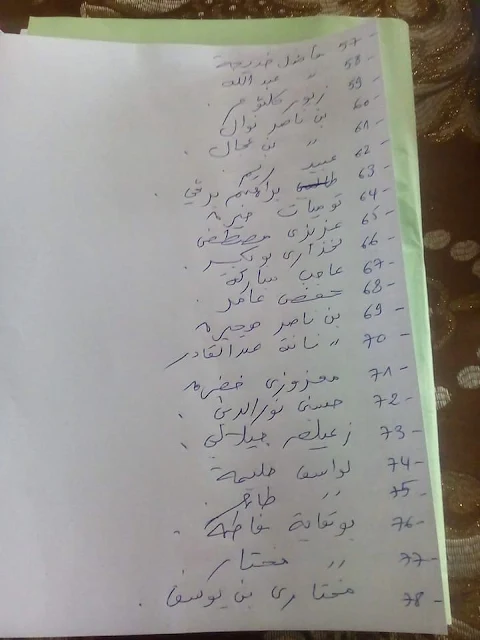 57- فاضل خديجة
58- " عبد الله
59- زيور كلثوم
60- بن ناصر نوال
61- " بن
62- عبيد
63- براهيم برقي
64- توميات خيرة
65- عزيزي مصطفى
66- لخذاري بوبكر
67- مباركة
68- حفصي عامر
69- بن ناصر
70- " نانة عبد القادر
71- معزوزي خضرة
72- حسني نور الدين
73- جيلالي
74- لواسف حليمة
75- " طاهر
76- بوتقاية فاطمة
77- " مختار
78- مختاري بن يوسف